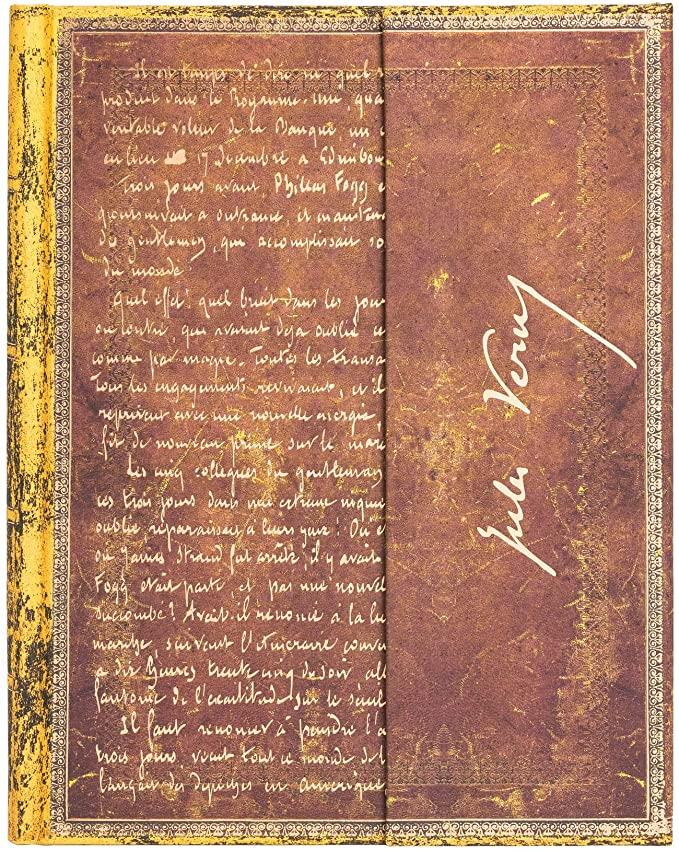 Il est temps de dire quel
produit dans le Royaume-Uni, qua
veritable voleur de la Banque, un c
eu lieu 17 Decembre a Edimbou
Trois jours avant, Phileas Fogg e
poursuivait a outrance, et mainten
des gentlemen, qui accomplissait so
du monde.
Quel effet! quel bruit dans les jour
ou contre, qui avaient deja oublié ce
comme par magie. Toutes les transa
Tous les engagements revivaient, et il
reprirent avec une nouvelle energie,
fit de nouveau prime sur le marc
Les cinq collegues du gentleman
ces trois jours dans une inquie
oublié reparaissait à leurs yeux! Où e
où James Strand fut arrêté, il y avait
Fogg etait parti, et pas une nouvel
succombé? Avait-il renoncé à la lu
marche, suivant l'Itineraire conve
a dix heures trente cinq du soir all
fantome de l'exactitude sur le seuil
Il faut renoncer à peindre l'a
trois jours, vecut tout ce monde de l
lançait des depeches en Amerique
Jules Verne